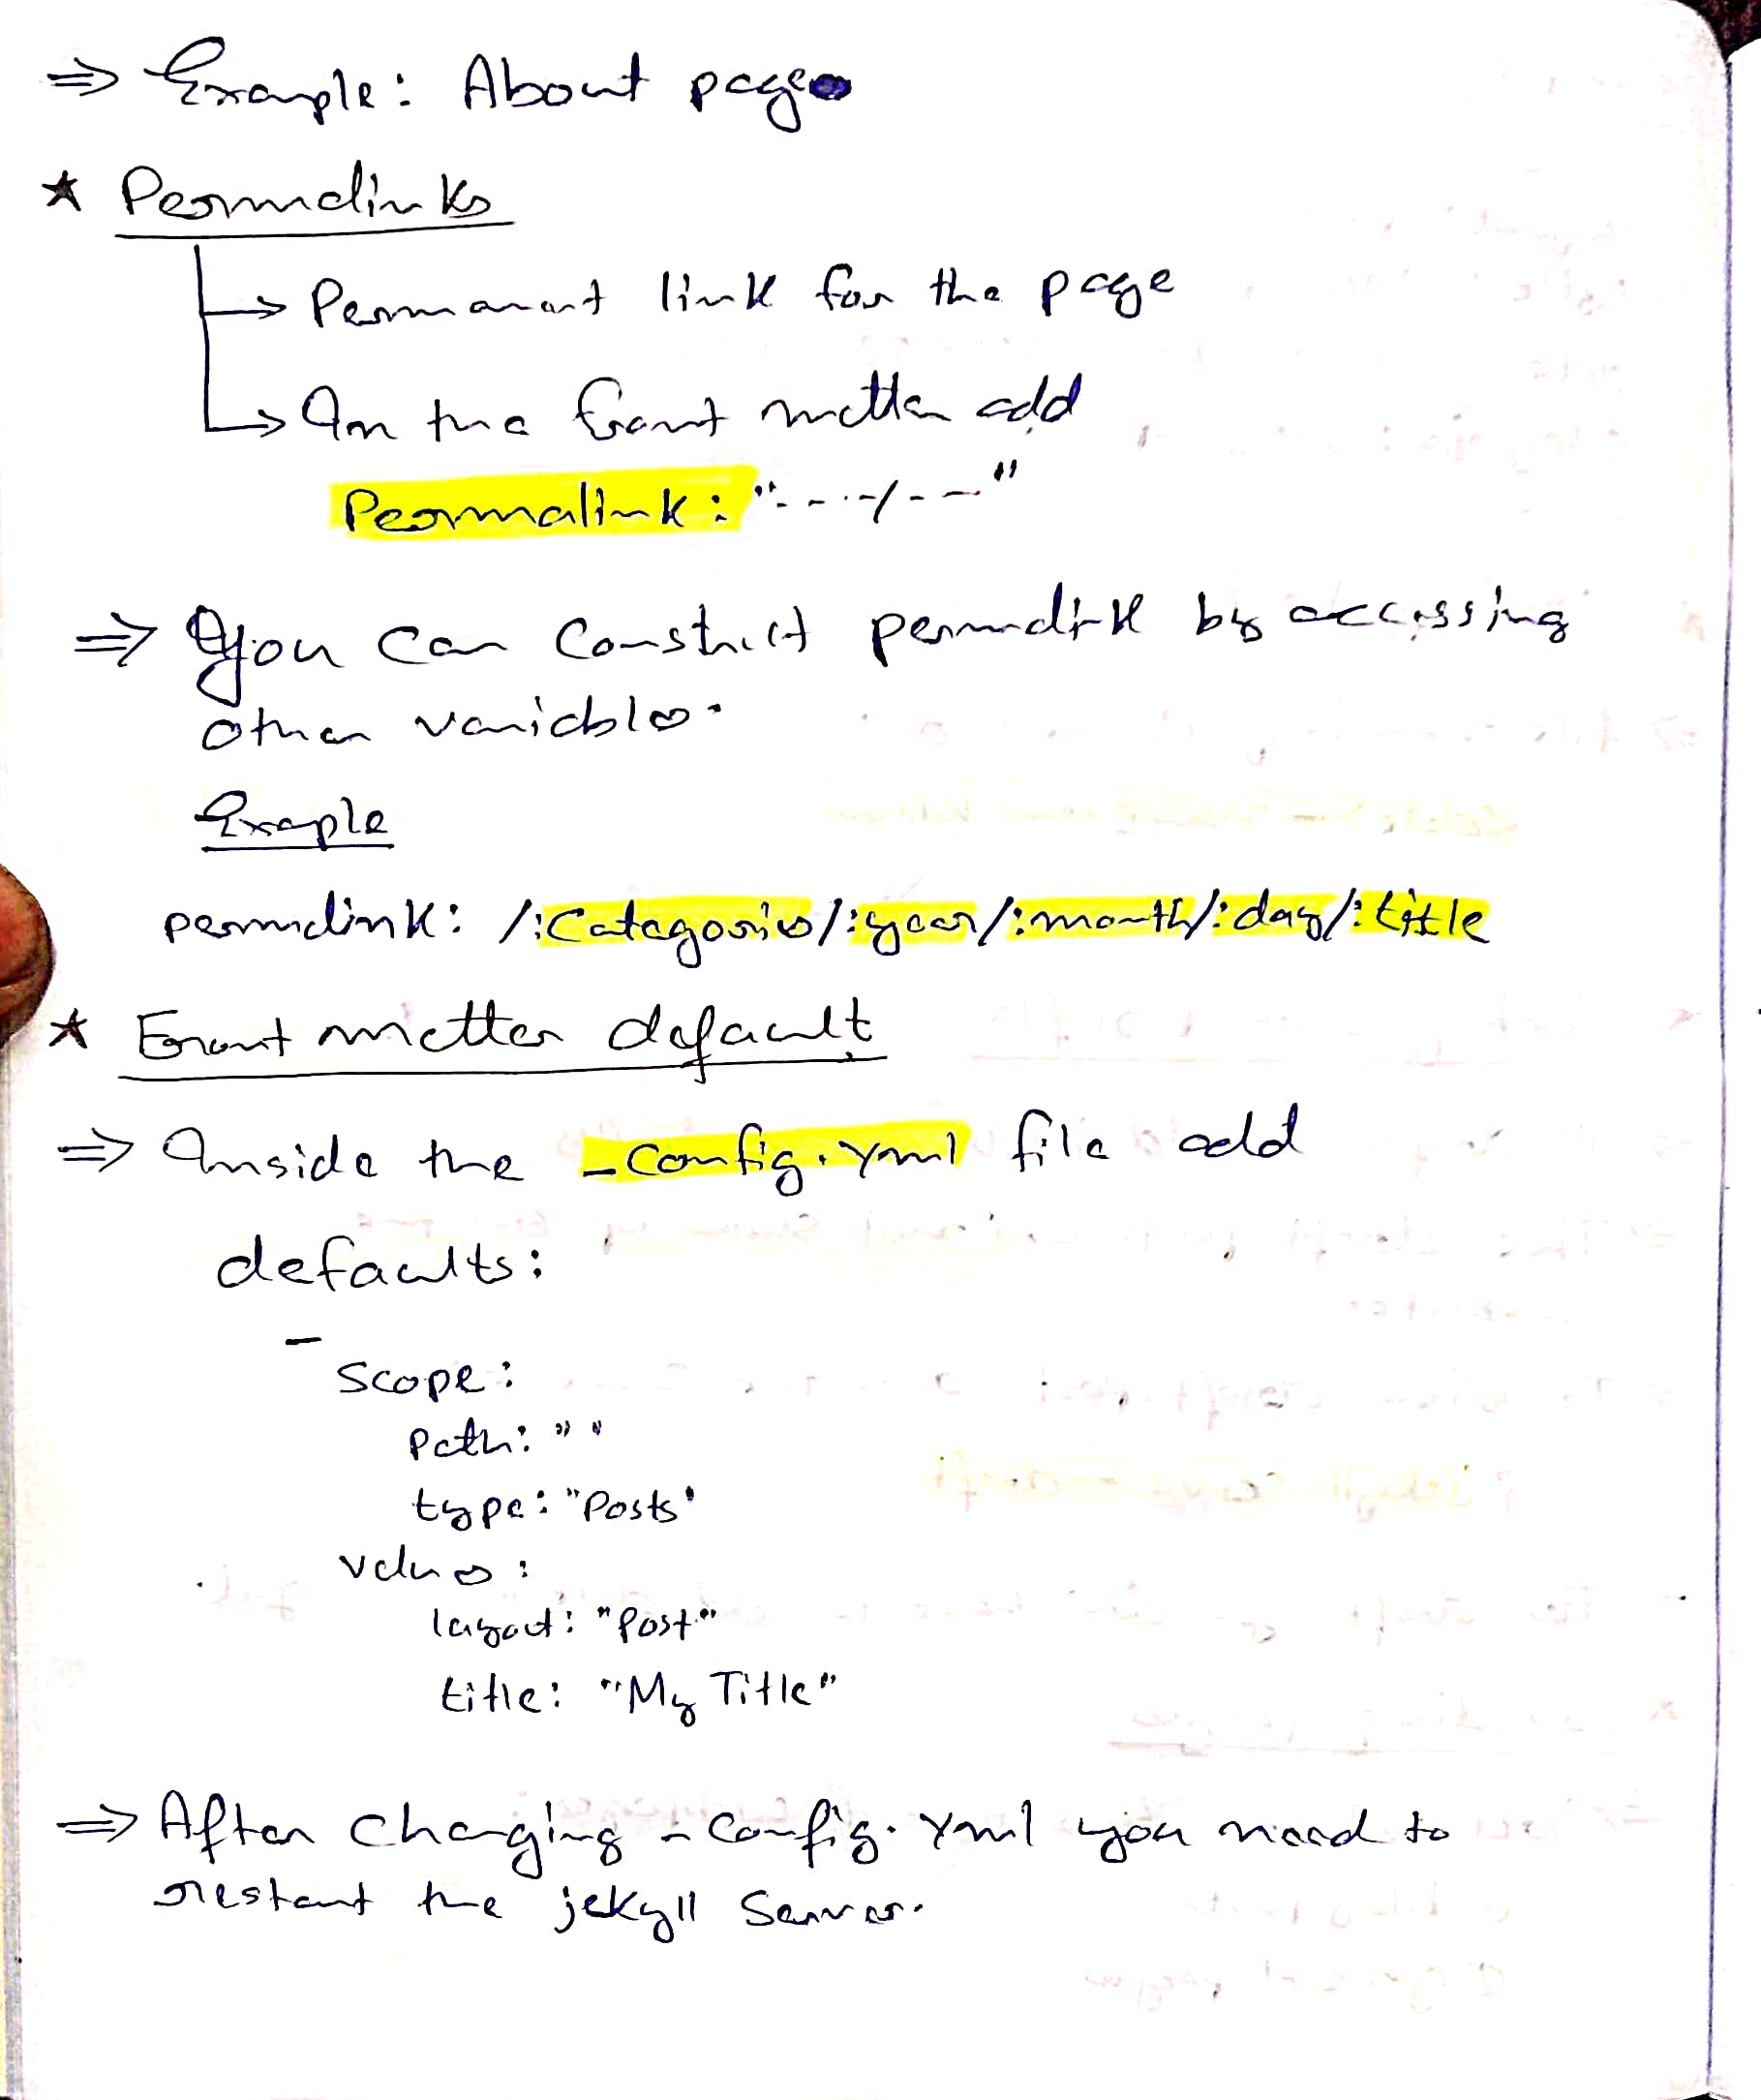 ⇒ Example: About page
★ Permalinks
↳ Permanant link for the page
↳ In the front matter add
Permalink: "- - - -/- - -"
⇒ You can construct permalink by accessing
other variables.
Exaple
permalink: /:Categories/:year/:month/:day/:title
★ Front matter default
⇒ Inside the _config.yml file add
defaults:
-
scope:
Path: ""
type: "Posts"
values:
layout: "Post"
title: "My Title"
⇒ After changing _config.yml you need to
restart the jekyll server.